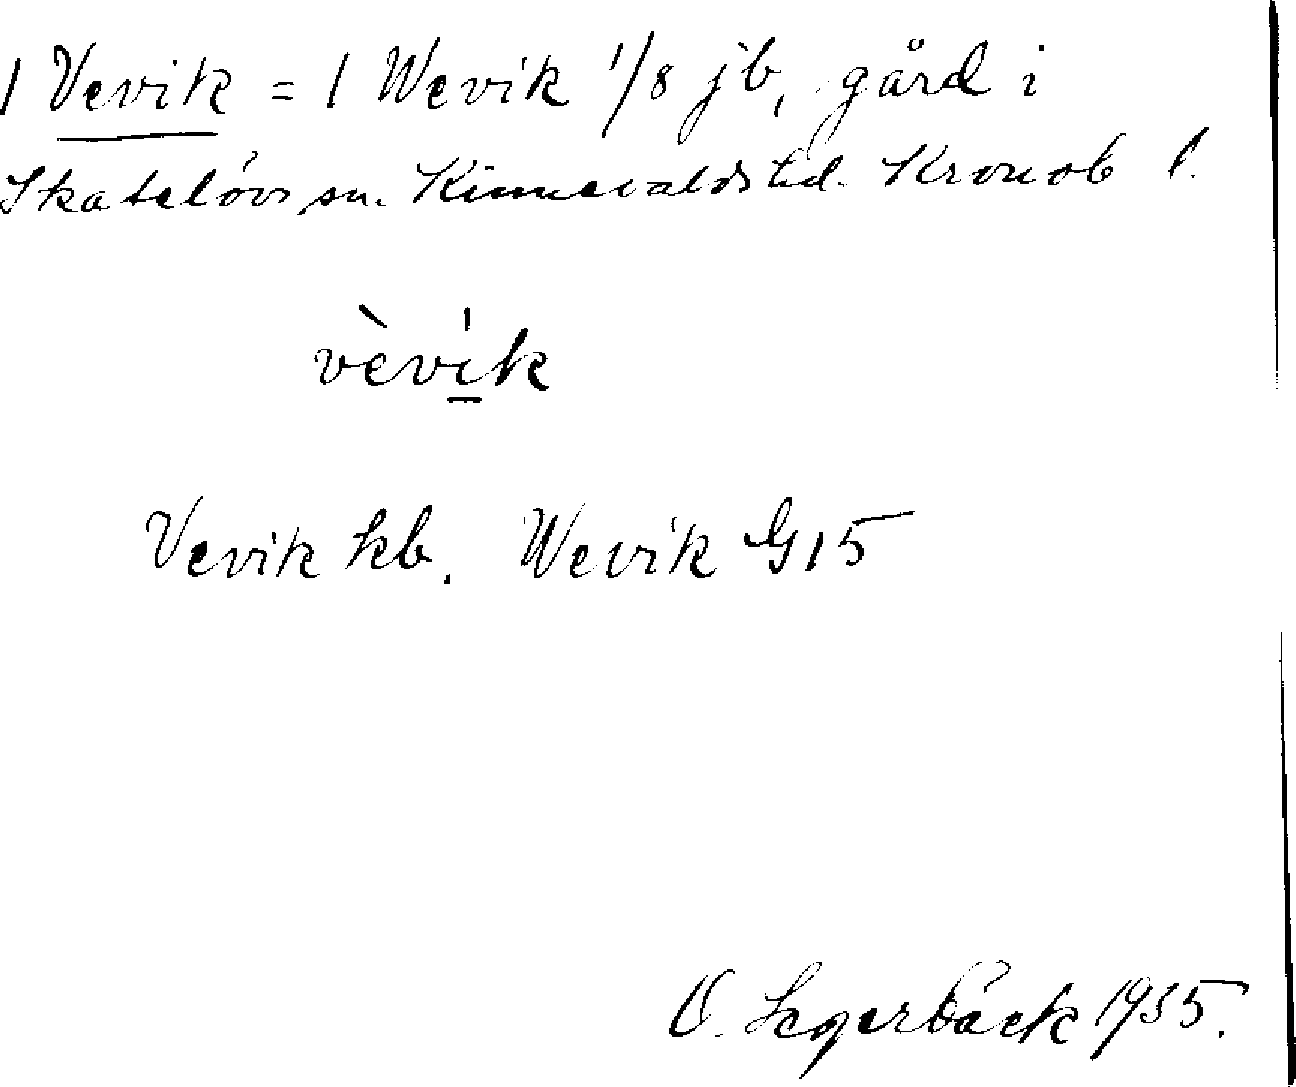 1 Vevik = 1 Wevik 1/8 jb, gård i
Skatelövs sn. Kinnevalds hd. Kronob l.
vèvik
Vevik kb. Wevik G15
O. Segerbäck 1935.